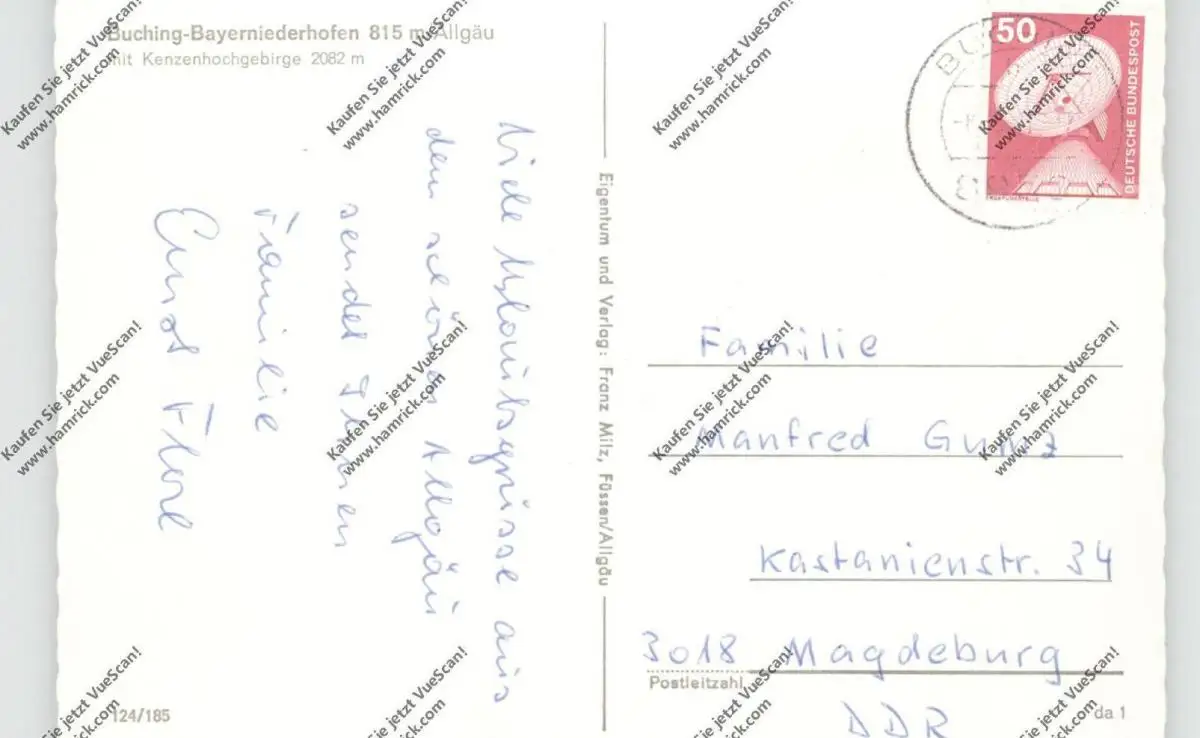 Buching-Bayerniederhofen 815 m Allgäu
mit Kenzenhochgebirge 2082 m
Viele Urlaubsgrüsse aus
dem schönen Allgäu
sendet Ihnen
Familie
Ernst
Eigentum und Verlag: Franz Milz, Füssen/Allgäu
50
DEUTSCHE BUNDESPOST
Familie
Manfred Gunz
Kastanienstr. 34
3018 Magdeburg
Postleitzahl
DDR
124/185
da 1
Kaufen Sie jetzt VueScan!
www.hamrick.com